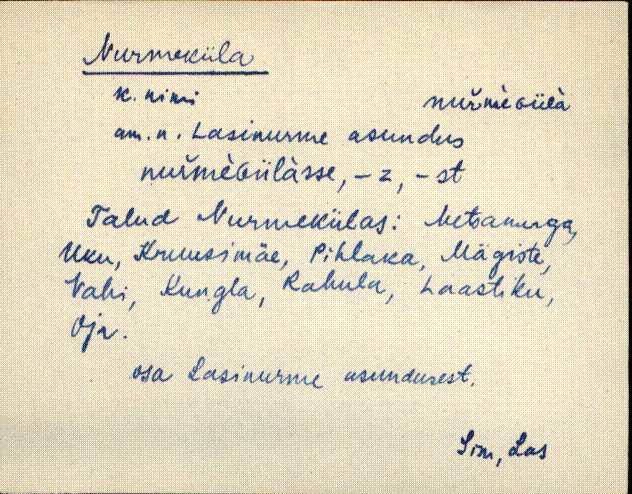 Nurmeküla
k. nimi nuřmèɢülà
am. n. Lasinurme asundus
nuřmèɢülàsse, -z, -st
Talud Nurmekülas: Metsanurga,
Uku, Kruusimäe, Pihlaka, Mägiste,
Vahi, Kungla, Rahula, Laastiku,
Oja.
osa Lasinurme asundusest.
Sim, Las